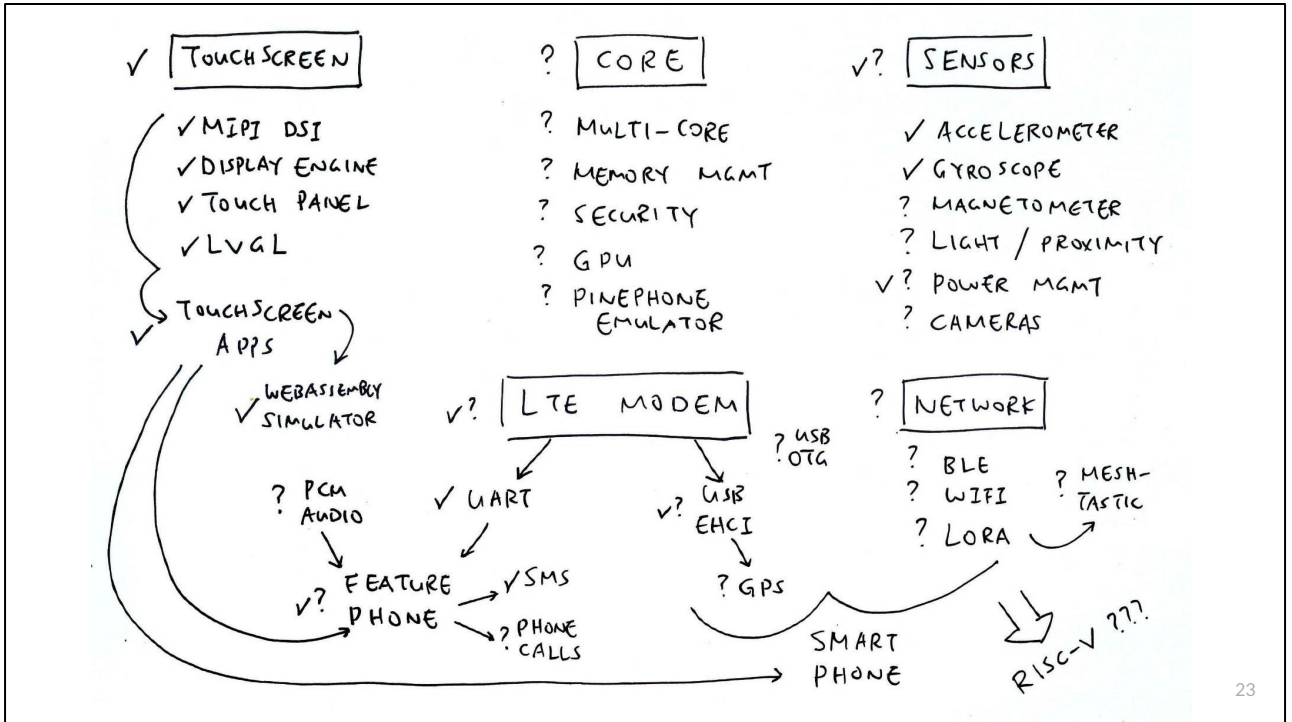 ✓ TOUCHSCREEN
✓ MIPI DSI
✓ DISPLAY ENGINE
✓ TOUCH PANEL
✓ LVGL
✓ TOUCHSCREEN
APPS
✓ WEBASSEMBLY
SIMULATOR
? CORE
? MULTI-CORE
? MEMORY MGMT
? SECURITY
? GPU
? PINEPHONE
EMULATOR
✓? SENSORS
✓ ACCELEROMETER
✓ GYROSCOPE
? MAGNETOMETER
? LIGHT / PROXIMITY
✓? POWER MGMT
? CAMERAS
✓? LTE MODEM
? USB
OTG
? PCM
AUDIO
✓ UART
✓? USB
EHCI
✓? FEATURE
PHONE
✓ SMS
? PHONE
CALLS
? GPS
? NETWORK
? BLE
? WIFI
? LORA
? MESH-
TASTIC
SMART
PHONE
RISC-V ???
23